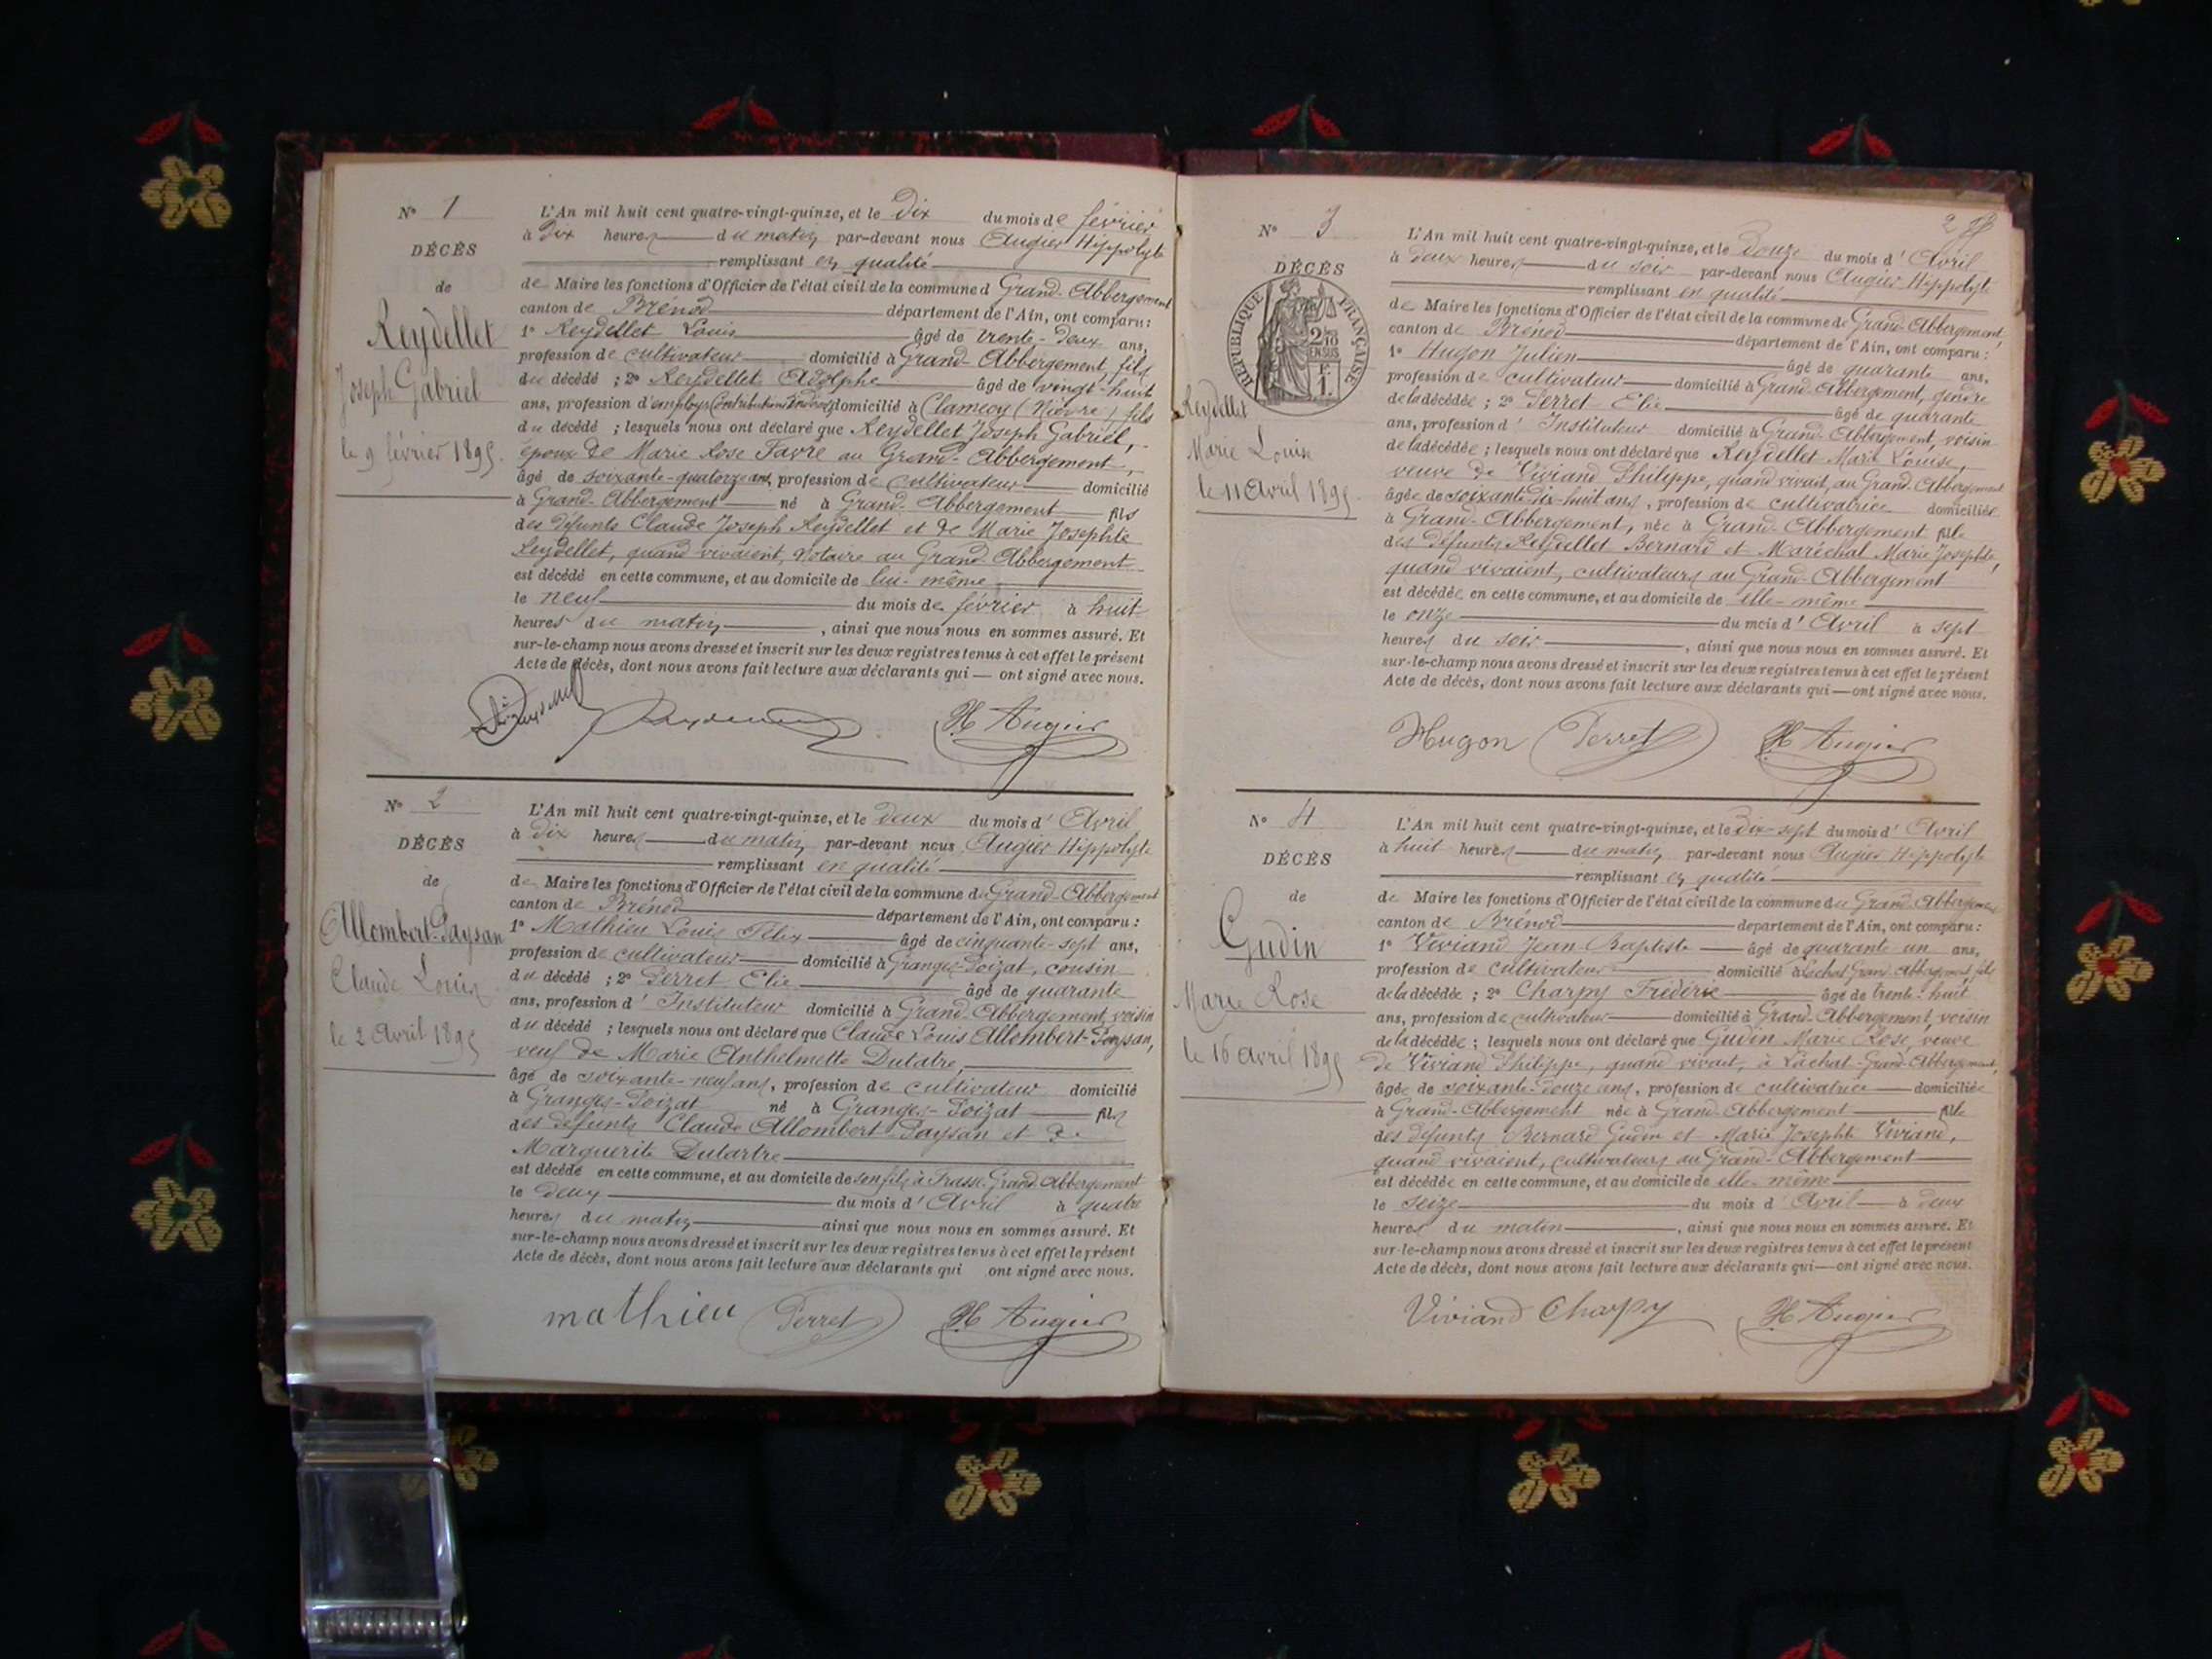 N° 1
DÉCÈS
de
Reydellet
Joseph Gabriel
le 9 février 1895.
L'An mil huit cent quatre-vingt-quinze, et le dix du mois de février
à dix heures du matin par-devant nous Augier Hippolyte
remplissant en qualité
de Maire les fonctions d'Officier de l'état civil de la commune d Grand-Abbergement
canton de Brénod département de l'Ain, ont comparu :
1° Reydellet Louis âgé de trente-deux ans,
profession de cultivateur domicilié à Grand-Abbergement, fils
du décédé ; 2° Reydellet Adolphe âgé de vingt-huit
ans, profession d'employé Contributions Indirectes domicilié à Clamecy (Nièvre) fils
du décédé ; lesquels nous ont déclaré que Reydellet Joseph Gabriel,
époux de Marie Rose Favre au Grand-Abbergement,
âgé de soixante-quatorze ans, profession de cultivateur domicilié
à Grand-Abbergement né à Grand-Abbergement fils
des défunts Claude Joseph Reydellet et de Marie Josephte
Reydellet, quand vivaient, Notaire au Grand-Abbergement
est décédé en cette commune, et au domicile de lui-même
le neuf du mois de février à huit
heures du matin, ainsi que nous nous en sommes assuré. Et
sur-le-champ nous avons dressé et inscrit sur les deux registres tenus à cet effet le présent
Acte de décès, dont nous avons fait lecture aux déclarants qui — ont signé avec nous.
H Augier
N° 2
DÉCÈS
de
Allombert-Paysan
Claude Louis
le 2 Avril 1895
L'An mil huit cent quatre-vingt-quinze, et le deux du mois d' Avril
à dix heures du matin par-devant nous Augier Hippolyte
remplissant en qualité
de Maire les fonctions d'Officier de l'état civil de la commune de Grand-Abbergement
canton de Brénod département de l'Ain, ont comparu :
1° Mathieu Louis Félix âgé de cinquante-sept ans,
profession de cultivateur domicilié à Granges-Poizat, cousin
du décédé ; 2° Perret Elie âgé de quarante
ans, profession d' Instituteur domicilié à Grand-Abbergement, voisin
du décédé ; lesquels nous ont déclaré que Claude Louis Allombert-Paysan,
veuf de Marie Anthelmette Dutatre,
âgé de soixante-neuf ans, profession de cultivateur domicilié
à Granges-Poizat né à Granges-Poizat fils
des défunts Claude Allombert-Paysan et de
Marguerite Dutartre
est décédé en cette commune, et au domicile de son fils à Frasse-Grand-Abbergement
le deux du mois d' Avril à quatre
heures du matin ainsi que nous nous en sommes assuré. Et
sur-le-champ nous avons dressé et inscrit sur les deux registres tenus à cet effet le présent
Acte de décès, dont nous avons fait lecture aux déclarants qui ont signé avec nous.
mathieu Perret H Augier
2
N° 3
DÉCÈS
RÉPUBLIQUE FRANÇAISE
2/10 EN SUS
Reydellet
Marie Louise
le 11 Avril 1895
L'An mil huit cent quatre-vingt-quinze, et le douze du mois d' Avril
à deux heures du soir par-devant nous Augier Hippolyte
remplissant en qualité
de Maire les fonctions d'Officier de l'état civil de la commune de Grand-Abbergement,
canton de Brénod département de l'Ain, ont comparu :
1° Hugon Julien âgé de quarante ans,
profession de cultivateur domicilié à Grand-Abbergement, gendre
de la décédée ; 2° Perret Elie âgé de quarante
ans, profession d' Instituteur domicilié à Grand-Abbergement, voisin
de la décédée ; lesquels nous ont déclaré que Reydellet Marie Louise,
veuve de Viviand Philippe, quand vivait, au Grand-Abbergement
âgée de soixante-dix-huit ans, profession de cultivatrice domiciliée
à Grand-Abbergement, née à Grand-Abbergement fille
des défunts Reydellet Bernard et Maréchal Marie Josephte,
quand vivaient, cultivateurs au Grand-Abbergement
est décédée en cette commune, et au domicile de elle-même
le onze du mois d' Avril à sept
heures du soir, ainsi que nous nous en sommes assuré. Et
sur-le-champ nous avons dressé et inscrit sur les deux registres tenus à cet effet le présent
Acte de décès, dont nous avons fait lecture aux déclarants qui — ont signé avec nous.
Hugon Perret H Augier
N° 4
DÉCÈS
de
Gudin
Marie Rose
le 16 Avril 1895
L'An mil huit cent quatre-vingt-quinze, et le dix-sept du mois d' Avril
à huit heures du matin par-devant nous Augier Hippolyte
remplissant en qualité
de Maire les fonctions d'Officier de l'état civil de la commune du Grand-Abbergement
canton de Brénod département de l'Ain, ont comparu :
1° Viviand Jean Baptiste âgé de quarante un ans,
profession de cultivateur domicilié à Lachat-Grand-Abbergement, fils
de la décédée ; 2° Charpy Frédéric âgé de trente-huit
ans, profession de cultivateur domicilié à Grand-Abbergement, voisin
de la décédée ; lesquels nous ont déclaré que Gudin Marie Rose, veuve
de Viviand Philippe, quand vivait, à Lachat-Grand-Abbergement,
âgée de soixante-douze ans, profession de cultivatrice domiciliée
à Grand-Abbergement née à Grand-Abbergement fille
des défunts Bernard Gudin et Marie Josephte Viviand,
quand vivaient, cultivateurs au Grand-Abbergement
est décédée en cette commune, et au domicile de elle-même
le seize du mois d' Avril à deux
heures du matin, ainsi que nous nous en sommes assuré. Et
sur-le-champ nous avons dressé et inscrit sur les deux registres tenus à cet effet le présent
Acte de décès, dont nous avons fait lecture aux déclarants qui — ont signé avec nous.
Viviand Charpy H Augier